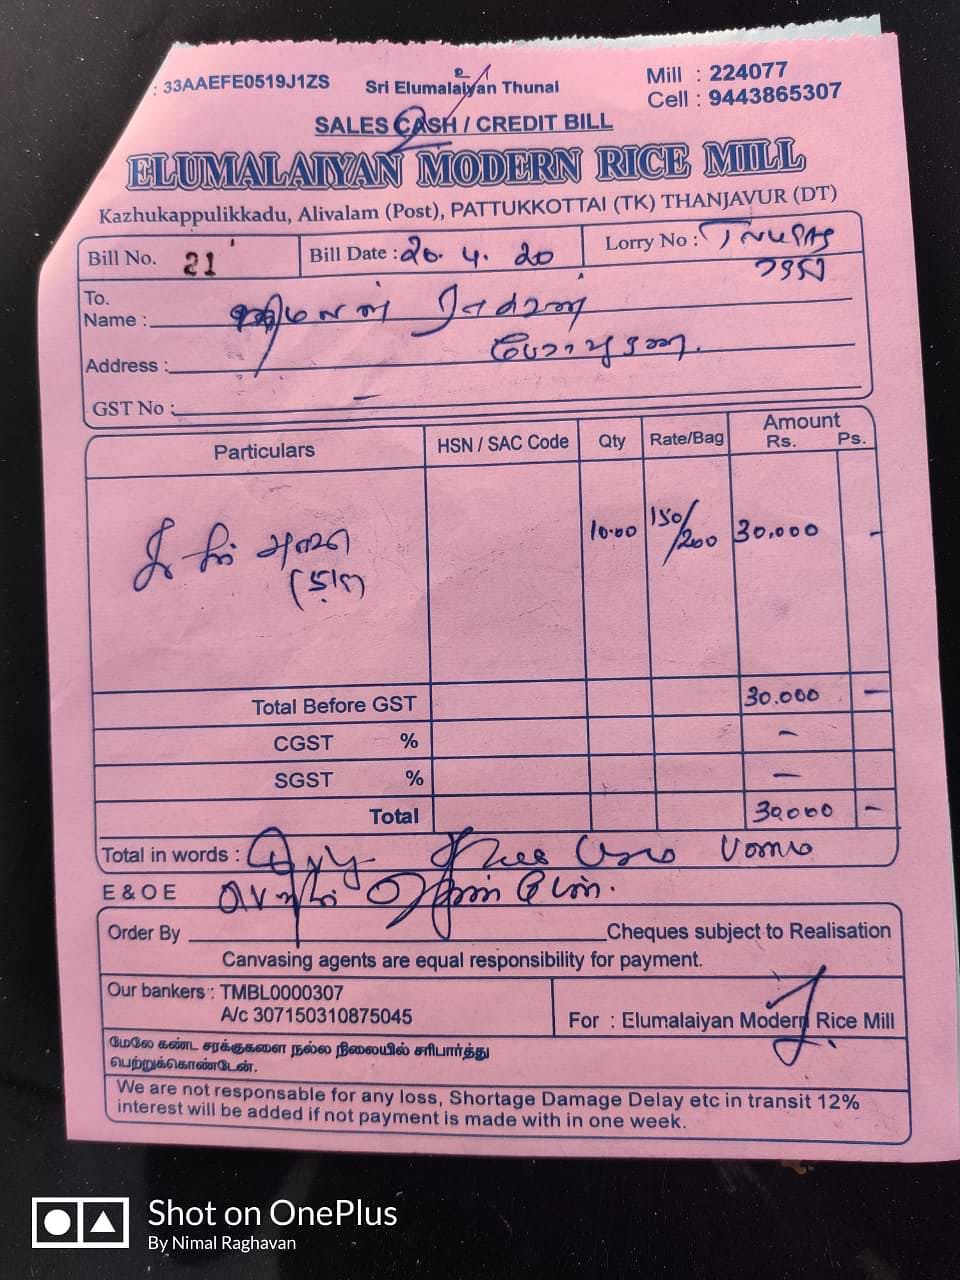 : 33AAEFE0519J1ZS
உ
Sri Elumalaiyan Thunai
Mill : 224077
Cell : 9443865307
SALES CASH / CREDIT BILL
ELUMALAIYAN MODERN RICE MILL
Kazhukappulikkadu, Alivalam (Post), PATTUKKOTTAI (TK) THANJAVUR (DT)
Bill No. 21
Bill Date : 20. 4. 20
Lorry No :
To.
Name :
Address :
GST No : —
Particulars HSN / SAC Code Qty Rate/Bag Amount Rs. Ps.
10.00 150/200 30.000 -
Total Before GST 30.000 —
CGST % —
SGST % —
Total 30,000 —
Total in words :
E & O E
Order By Cheques subject to Realisation
Canvasing agents are equal responsibility for payment.
Our bankers : TMBL0000307
A/c 307150310875045
For : Elumalaiyan Modern Rice Mill
மேலே கண்ட சரக்குகளை நல்ல நிலையில் சரிபார்த்து
பெற்றுக்கொண்டேன்.
We are not responsable for any loss, Shortage Damage Delay etc in transit 12%
interest will be added if not payment is made with in one week.
Shot on OnePlus
By Nimal Raghavan